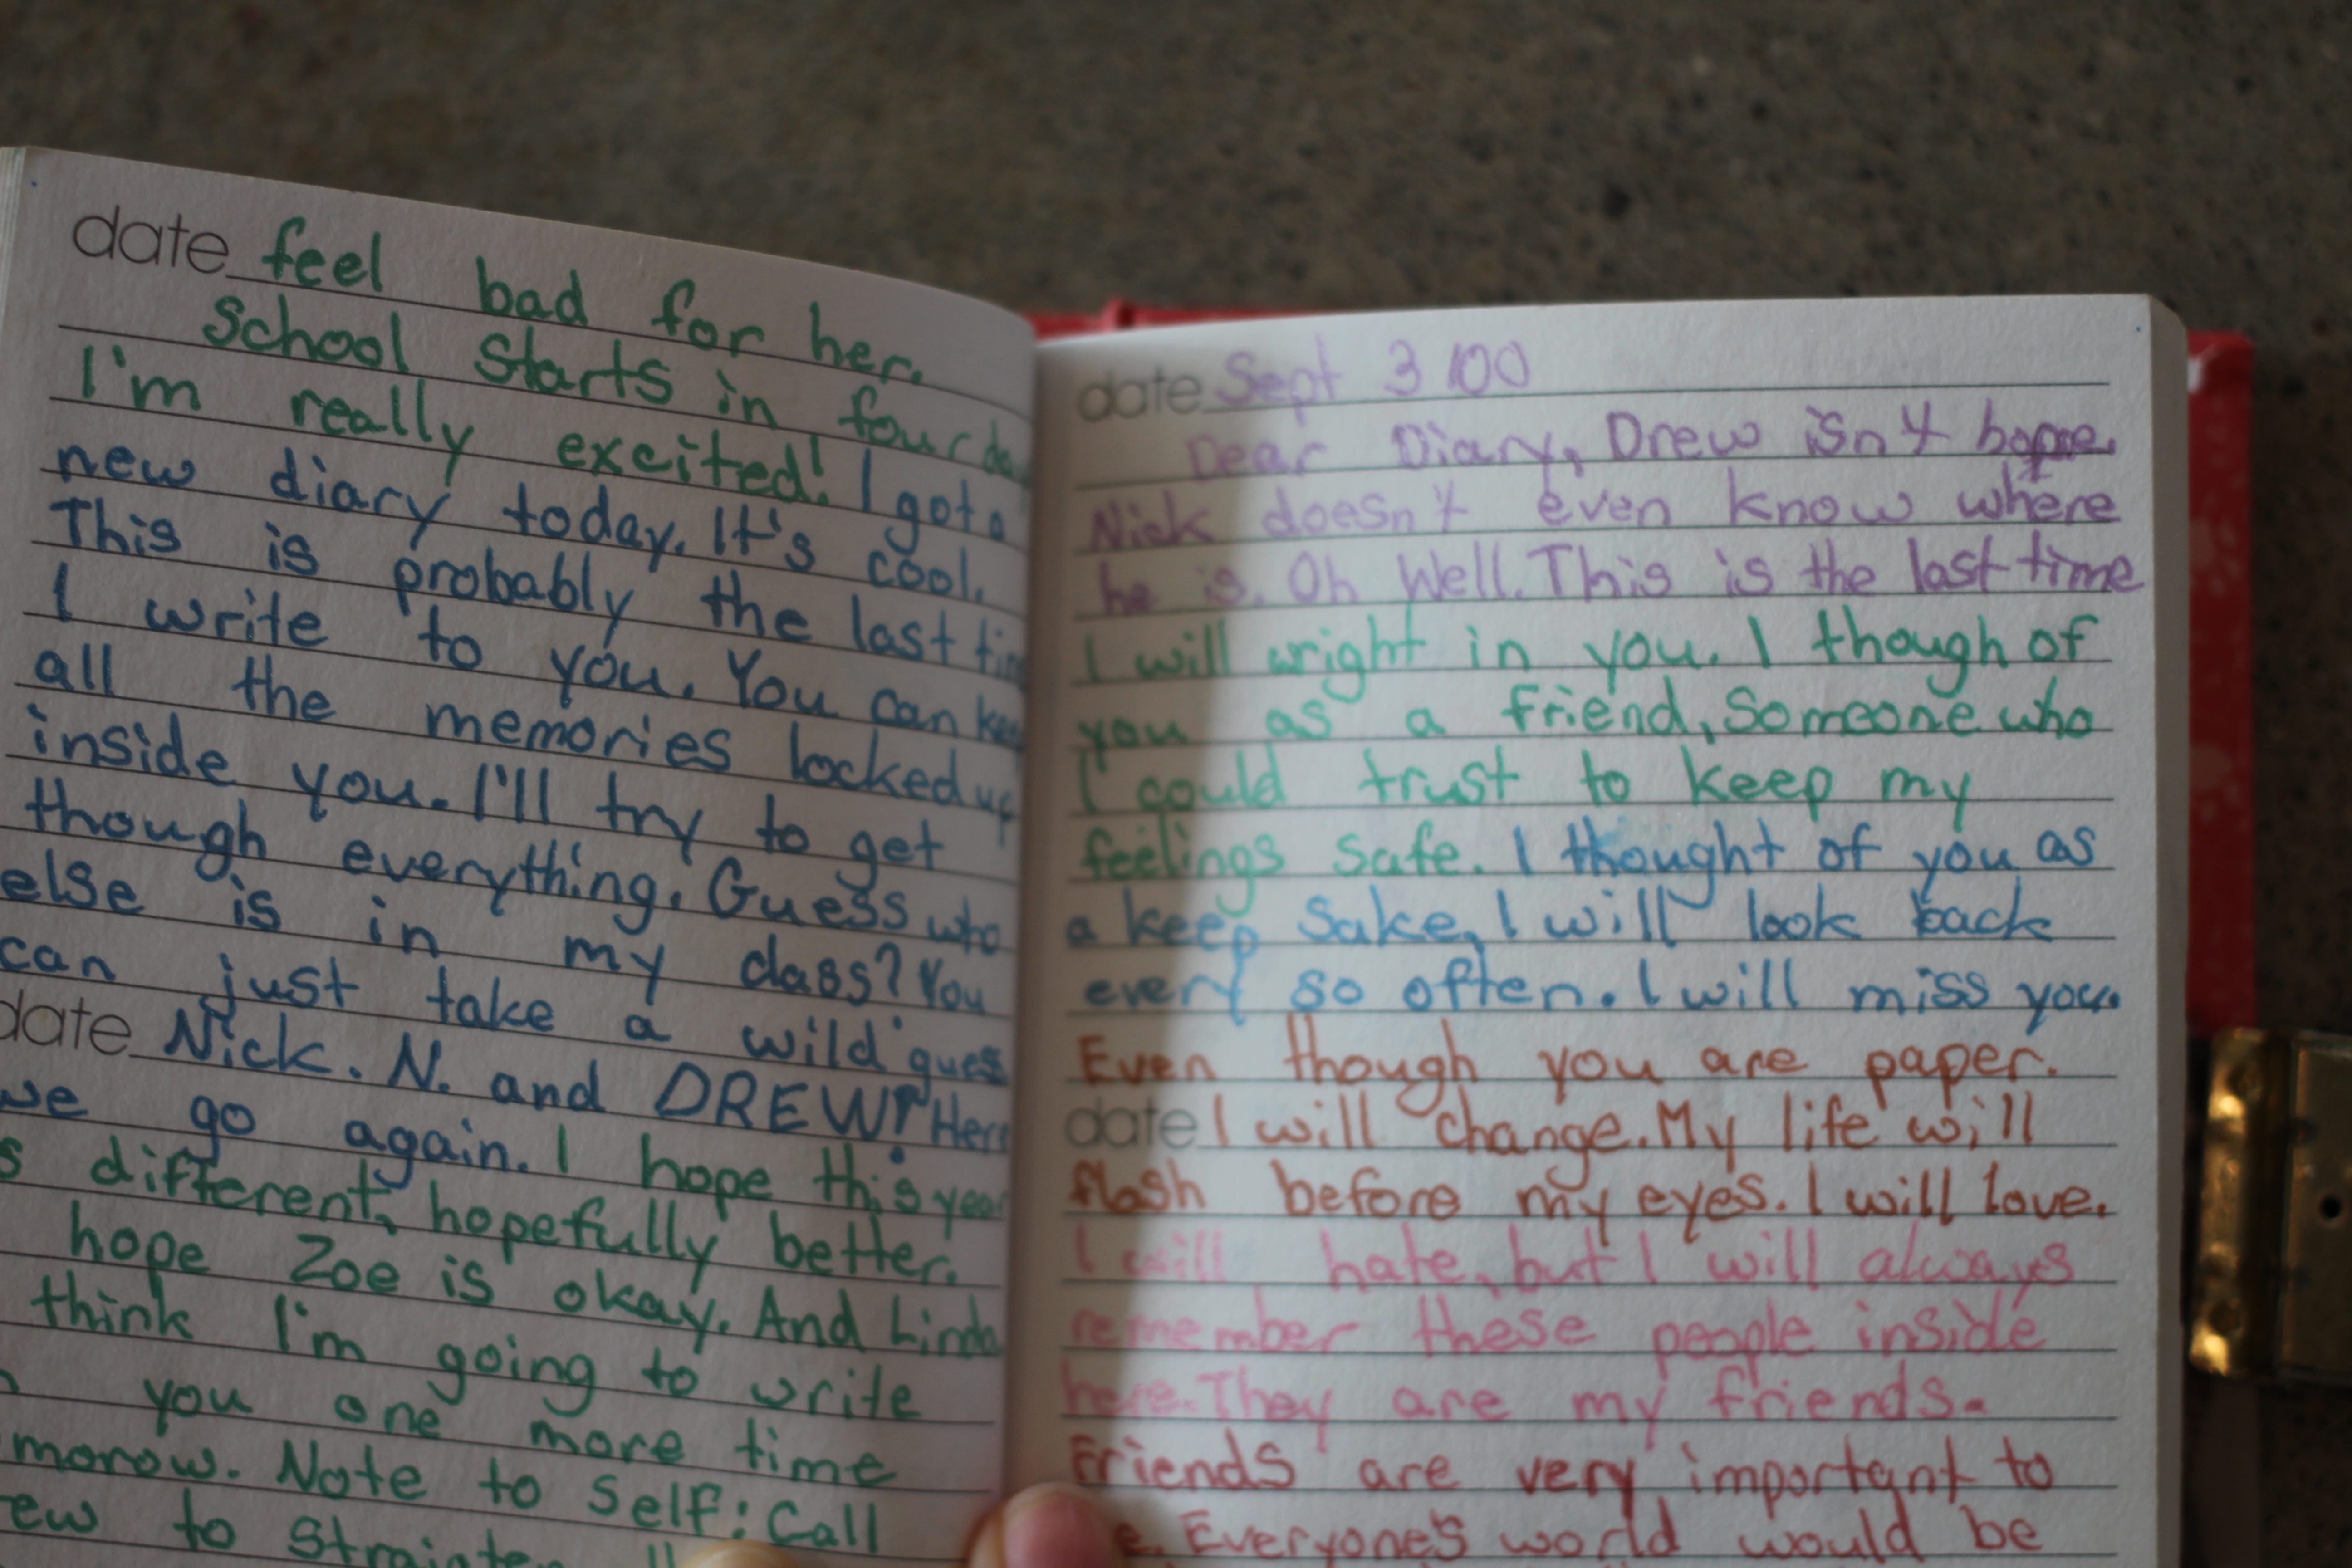 date feel bad for her.
School Starts in four
I'm really excited! I got a
new diary today. It's cool.
This is probably the last
I write to you. You can
all the memories locked up
inside you. I'll try to get
though everything. Guess who
else is in my class? You
can just take a wild gues
date Nick. N. and DREW! Here
we go again. I hope this year
different, hopefully better.
hope Zoe is okay. And Linda
think I'm going to write
you one more time
morow. Note to Self: Call
to
date Sept 3 100
Dear Diary, Drew isn't home.
Nick doesn't even know where
he is. Oh Well. This is the last time
I will wright in you. I though of
you as a friend, Someone who
I could trust to keep my
feelings safe. I thought of you as
a keep Sake, I will look back
every so often. I will miss you.
Even though you are paper.
date I will change. My life will
flash before my eyes. I will love.
I will hate, but I will always
remember these people inside
here. They are my friends.
Friends are very important to
Everyone's world would be